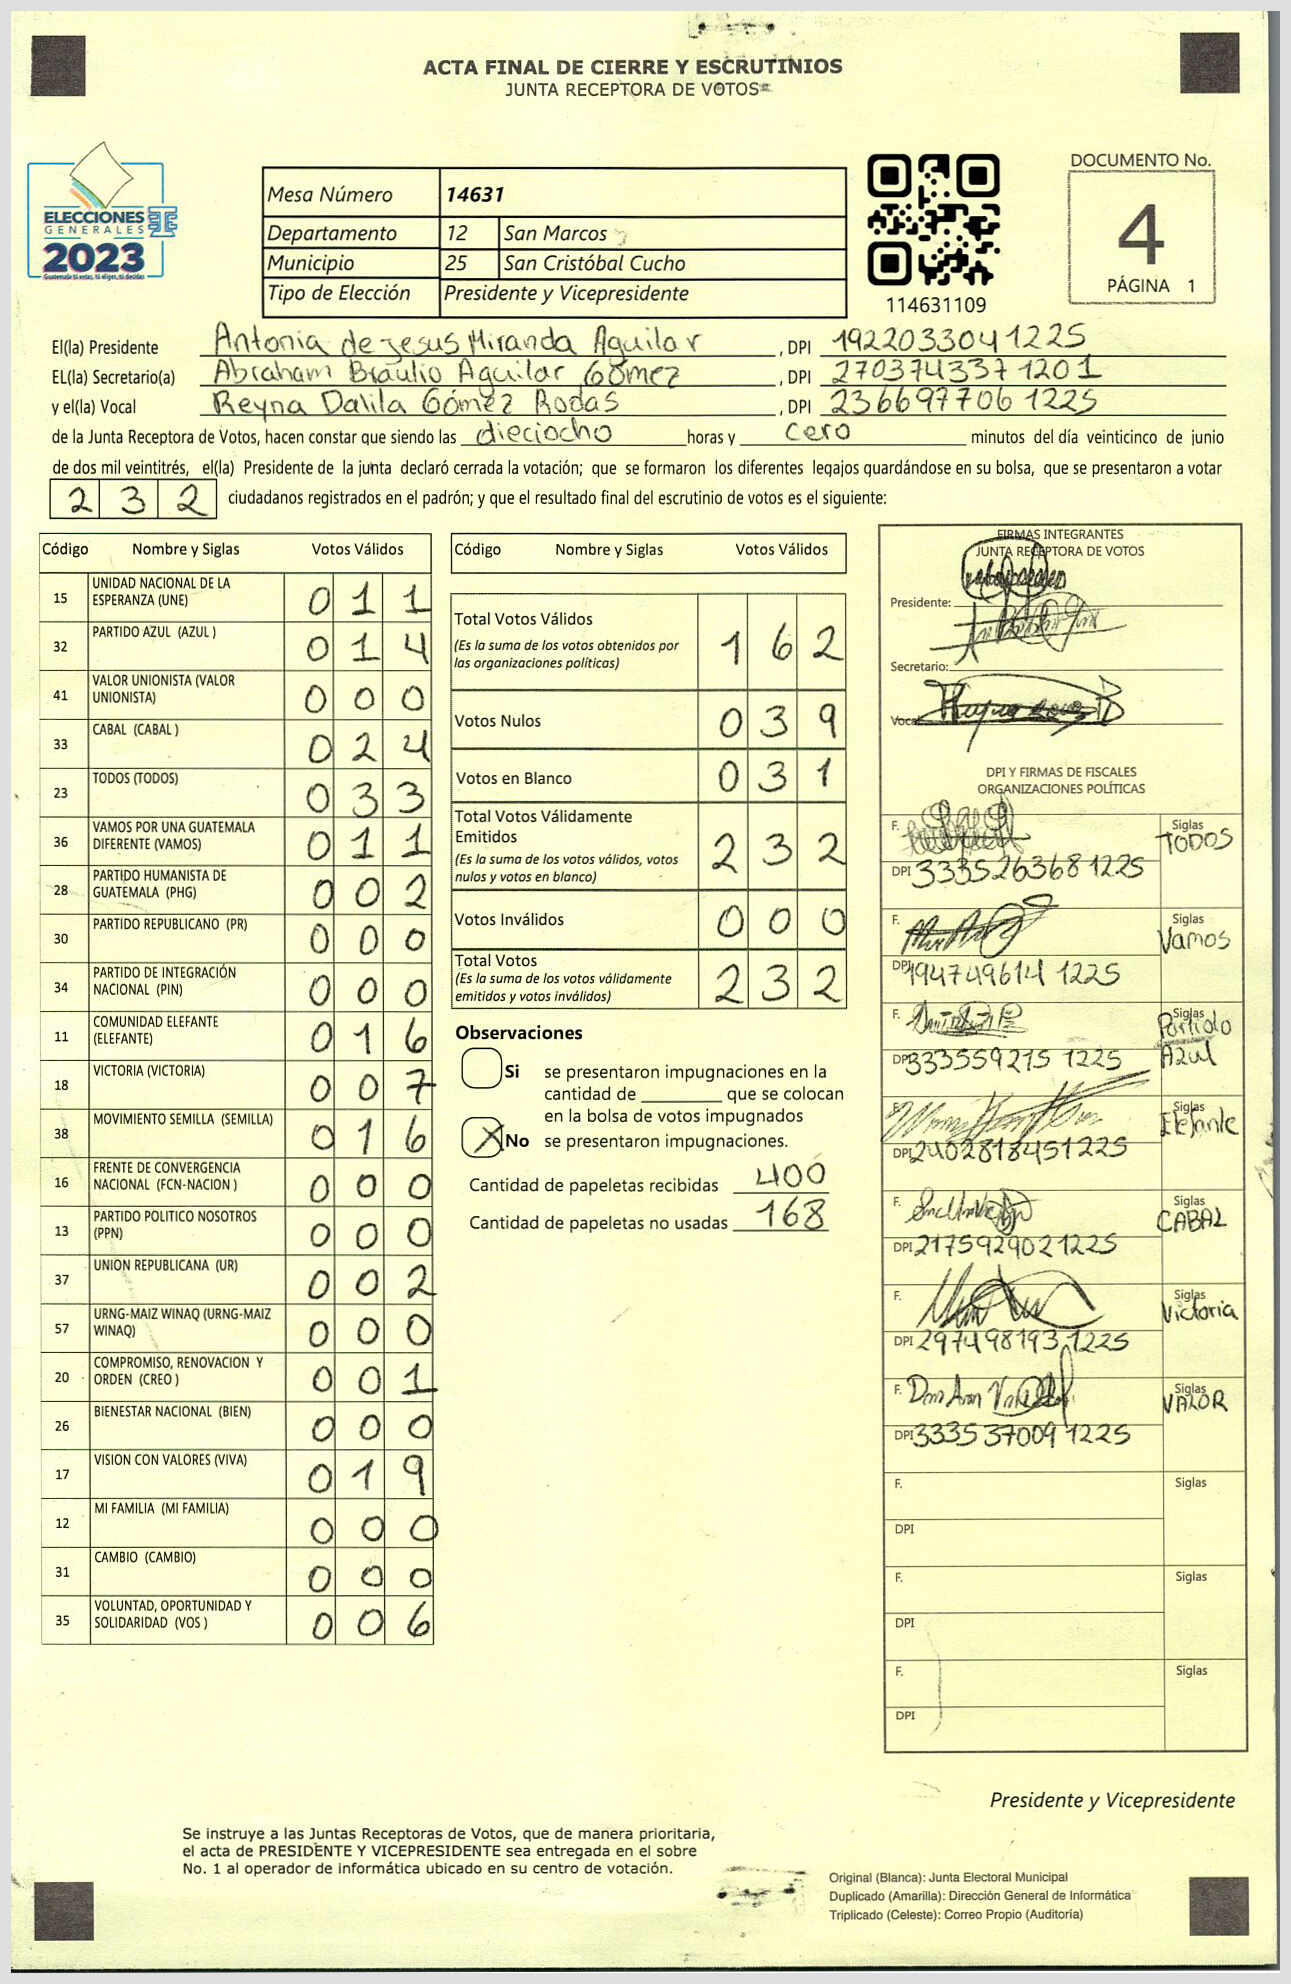 ACTA FINAL DE CIERRE Y ESCRUTINIOS
JUNTA RECEPTORA DE VOTOS
ELECCIONES
GENERALES
2023
Guatemala tú votas, tú eliges, tú decides
Mesa Número 14631
Departamento 12 San Marcos
Municipio 25 San Cristóbal Cucho
Tipo de Elección Presidente y Vicepresidente
114631109
DOCUMENTO No.
4
PÁGINA 1
El(la) Presidente Antonia de Jesus Miranda Aguilar , DPI 1922033041225
EL(la) Secretario(a) Abraham Braulio Aguilar Gómez , DPI 2703743371201
y el(la) Vocal Reyna Dalila Gómez Rodas , DPI 2366977061225
de la Junta Receptora de Votos, hacen constar que siendo las dieciocho horas y cero minutos del día veinticinco de junio
de dos mil veintitrés, el(la) Presidente de la junta declaró cerrada la votación; que se formaron los diferentes legajos guardándose en su bolsa, que se presentaron a votar
232 ciudadanos registrados en el padrón; y que el resultado final del escrutinio de votos es el siguiente:
Código Nombre y Siglas Votos Válidos
15 UNIDAD NACIONAL DE LA ESPERANZA (UNE) 011
32 PARTIDO AZUL (AZUL ) 014
41 VALOR UNIONISTA (VALOR UNIONISTA) 000
33 CABAL (CABAL ) 024
23 TODOS (TODOS) 033
36 VAMOS POR UNA GUATEMALA DIFERENTE (VAMOS) 011
28 PARTIDO HUMANISTA DE GUATEMALA (PHG) 002
30 PARTIDO REPUBLICANO (PR) 000
34 PARTIDO DE INTEGRACIÓN NACIONAL (PIN) 000
11 COMUNIDAD ELEFANTE (ELEFANTE) 016
18 VICTORIA (VICTORIA) 007
38 MOVIMIENTO SEMILLA (SEMILLA) 016
16 FRENTE DE CONVERGENCIA NACIONAL (FCN-NACION ) 000
13 PARTIDO POLITICO NOSOTROS (PPN) 000
37 UNION REPUBLICANA (UR) 002
57 URNG-MAIZ WINAQ (URNG-MAIZ WINAQ) 000
20 COMPROMISO, RENOVACION Y ORDEN (CREO ) 001
26 BIENESTAR NACIONAL (BIEN) 000
17 VISION CON VALORES (VIVA) 019
12 MI FAMILIA (MI FAMILIA) 000
31 CAMBIO (CAMBIO) 000
35 VOLUNTAD, OPORTUNIDAD Y SOLIDARIDAD (VOS ) 006
Código Nombre y Siglas Votos Válidos
Total Votos Válidos 162
(Es la suma de los votos obtenidos por
las organizaciones políticas)
Votos Nulos 039
Votos en Blanco 031
Total Votos Válidamente
Emitidos 232
(Es la suma de los votos válidos, votos
nulos y votos en blanco)
Votos Inválidos 000
Total Votos 232
(Es la suma de los votos válidamente
emitidos y votos inválidos)
Observaciones
Si se presentaron impugnaciones en la
cantidad de ________ que se colocan
en la bolsa de votos impugnados
X No se presentaron impugnaciones.
Cantidad de papeletas recibidas 400
Cantidad de papeletas no usadas 168
FIRMAS INTEGRANTES
JUNTA RECEPTORA DE VOTOS
Presidente:
Secretario:
Vocal
DPI Y FIRMAS DE FISCALES
ORGANIZACIONES POLÍTICAS
F. Siglas TODOS
DPI 3335263681225
F. Siglas Vamos
DPI 1947496141225
F. Siglas Partido Azul
DPI 3335592151225
Siglas Elefante
DPI 2402818451225
F. Siglas CABAL
DPI 2175929021225
F. Siglas Victoria
DPI 2974981931225
F. Siglas VALOR
DPI 3335370091225
F. Siglas
DPI
F. Siglas
DPI
F. Siglas
DPI
Presidente y Vicepresidente
Se instruye a las Juntas Receptoras de Votos, que de manera prioritaria,
el acta de PRESIDENTE Y VICEPRESIDENTE sea entregada en el sobre
No. 1 al operador de informática ubicado en su centro de votación.
Original (Blanca): Junta Electoral Municipal
Duplicado (Amarilla): Dirección General de Informática
Triplicado (Celeste): Correo Propio (Auditoría)